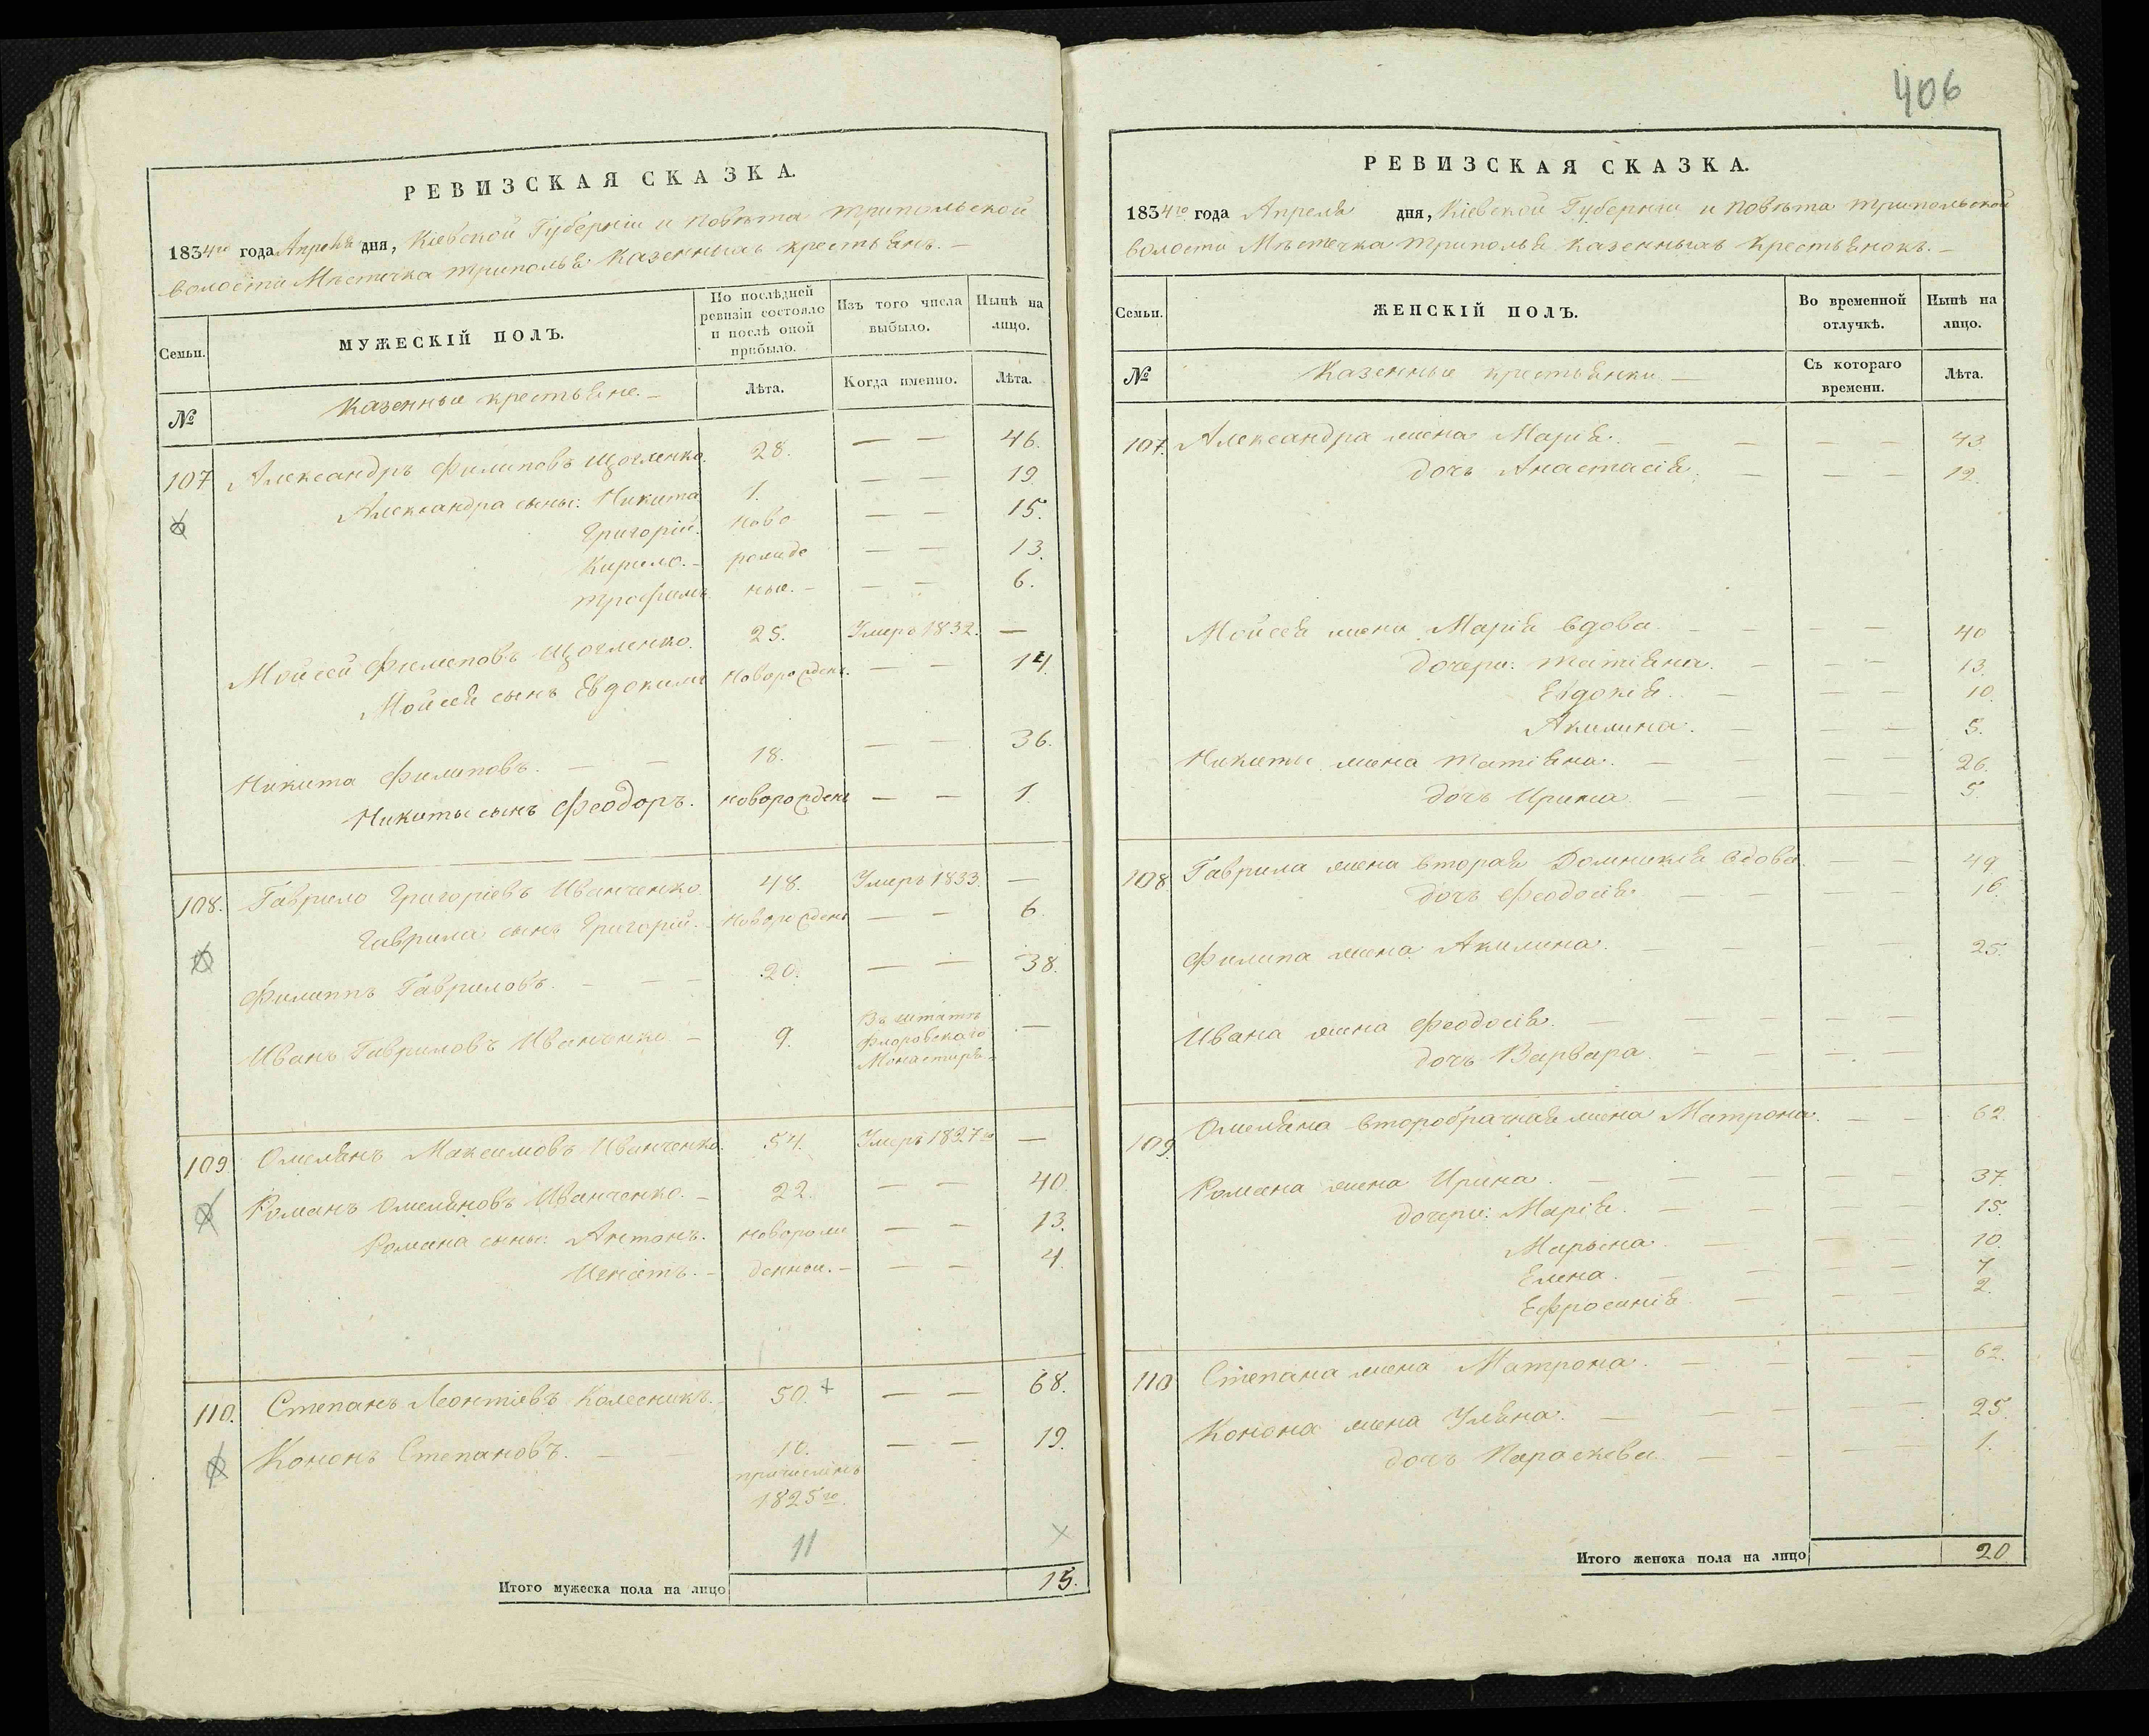 РЕВИЗСКАЯ СКАЗКА.
1834го года Апреля дня, Кіевской Губерніи и повѣта трипольской
волости Мѣстечка триполья казенныхъ крестьянъ. —
Семьи. МУЖЕСКІЙ ПОЛЪ. По послѣдней ревизіи состояло и послѣ оной прибыло. Изъ того числа выбыло. Нынѣ на лицо.
№ Казенные крестьяне. — Лѣта. Когда именно. Лѣта.
107 Александръ Филиповъ 28. — — 46.
Александра сыны: Никита 1. — — 19.
Григорій. ново — — 15.
Кирило. — рожде — — 13.
трофимъ ные. — — — 6.
Мойсей Филиповъ 25. Умеръ 1832. —
Мойсея сынъ Евдокимъ новорожденъ. — — 14.
Никита Филиповъ. — — 18. — — 36.
Никиты сынъ Феодоръ. новорожденъ — — 1.
108. Гаврило Григоріевъ Иванченко 48. Умеръ 1833. —
Гаврила сынъ Григорій. новорожденъ — — 6.
Филиппъ Гавриловъ. — — — 20. — — 38.
Иванъ Гавриловъ Иванченко — 9. Въ штатѣ Флоровского Монастиря —
109. Омелянъ Максимовъ Иванченко. 54. Умеръ 1827го —
Романъ Омеляновъ Иванченко. — 22. — — 40.
Романа сыны: Антонъ. новорож — — 13.
Игнатъ. — денные. — — — 4.
110. Степанъ Леонтіевъ Колесникъ. 50. + — — 68.
Кононъ Степановъ. — — 10. — — 19.
причисленъ
1825го.
11 ×
Итого мужеска пола на лицо 15.
406
РЕВИЗСКАЯ СКАЗКА.
1834го года Апреля дня, Кіевской Губерніи и повѣта трипольской
волости Мѣстечка триполья казенныхъ крестьянокъ. —
Семьи. ЖЕНСКІЙ ПОЛЪ. Во временной отлучкѣ. Нынѣ на лицо.
№ Казенные крестьянки — Съ котораго времени. Лѣта.
107. Александра жена Марія. — — — — 43.
дочь Анастасія. — — — 12.
Мойсея жена Марія вдова. — — — — 40
дочери: татіяна. — — — 13.
Евдокія. — — — 10.
Акилина. — — — 5.
Никиты жена татіяна. — — — — 26.
дочь Ирина. — — — — 5.
108. Гаврила жена вторая Домникія вдова — — 49
дочь Феодосія. — — — — 16.
Филипа жена Акилина. — — — — 25.
Ивана жена Феодосія. — — — — —
дочь Варвара. — — — — —
109. Омеляна второбрачная жена Матрона. — — 62
Романа жена Ирина. — — — — 37.
дочери: Марія. — — — — 15.
Марьяна. — — — 10.
Елена. — — — — 7
Ефросинія — — — 2.
110 Степана жена Матрона. — — — 62.
Конона жена Уляна. — — — — — 25.
дочь Параскева. — — — — 1.
Итого женска пола на лицо 20